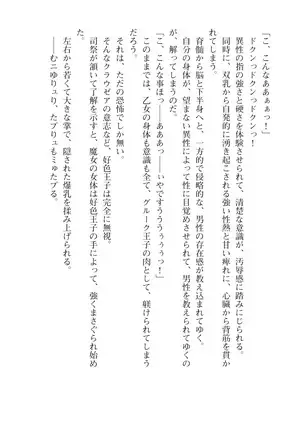 「こ、こんなあぁぁぁっ！」
ドクンっドクンっドクンっ！
異性の指の強さと硬さを体験させられて、清楚な意識が、汚辱感に踏みにじられる。
同時に、双乳から自発的に湧き起こされる強い性熱と甘い痺れに、心臓から背筋を貫かれてしまう。
脊髄から脳と下半身へと、一方的で侵略的な、男性の存在感が教え込まれてゆく。
自分の身体が、望まない異性によって性に目覚めさせられて、男性を教えられてゆくのが、解ってしまうのだ。
「こ、こんな事は――あああっ――いやですうううぅぅぅっ！」
このままでは、乙女の身体も意識も全て、グルーク王子の肉として、躾けられてしまうだろう。
それは、ただの恐怖でしかない。
そんなクラウゼアの意志など、好色王子には完全に無視。
司祭が頷いて了解を示すと、魔女の女体は好色王子の手によって、強くまさぐられ始めた。
左右から若くて大きな掌で、隠された爆乳を揉み上げられる。
――むニゆりゅり、たプりゅもミゅたプる。